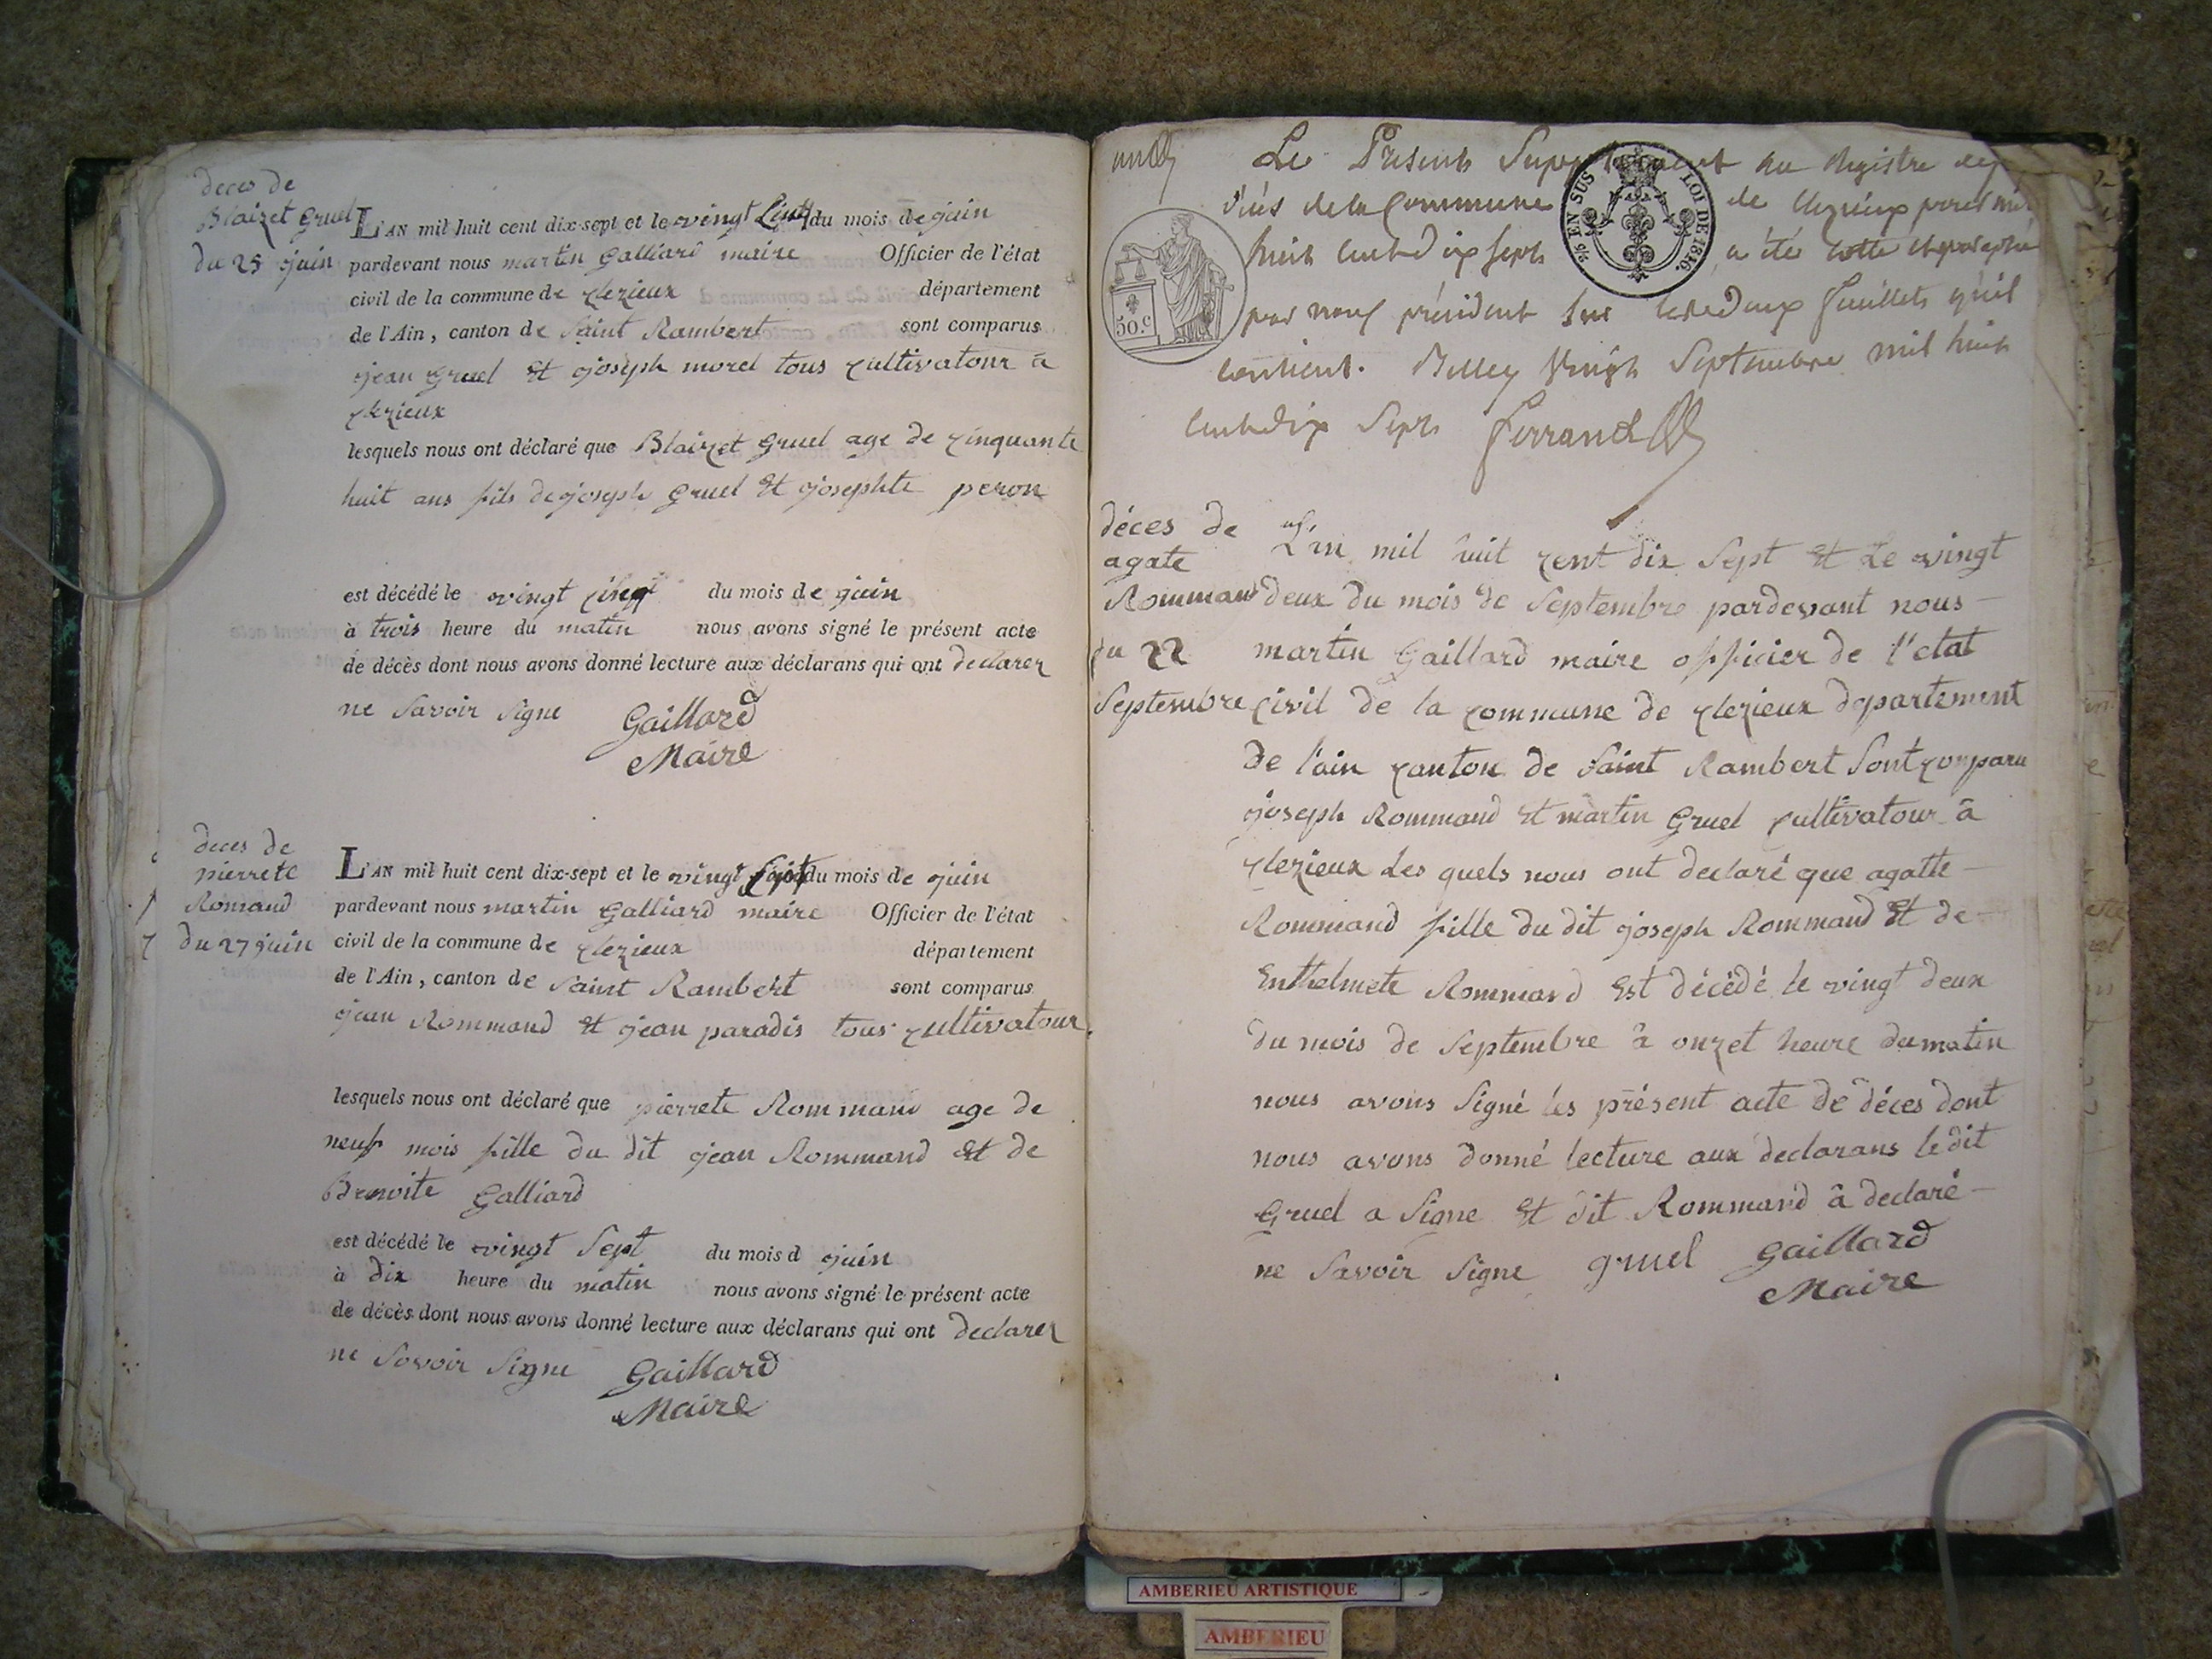 deces de
Blaizet Gruel
du 25 juin
L'AN mil huit cent dix-sept et le vingt Cinq du mois de juin
pardevant nous martin Galliard maire Officier de l'état
civil de la commune de Clezieux département
de l'Ain, canton de Saint Rambert sont comparus
jean Gruel Et joseph morel tous Cultivatour a
Clezieux
lesquels nous ont déclaré que Blaizet Gruel age de Cinquante
huit ans fils de joseph Gruel Et josephte peron
est décédé le vingt Cinq du mois de juin
à trois heure du matin nous avons signé le présent acte
de décès dont nous avons donné lecture aux déclarans qui ont declarer
ne Savoir Signe Gaillard
Maire
deces de
pierrete
Romand
du 27 juin
L'AN mil huit cent dix-sept et le vingt Sept du mois de juin
pardevant nous martin Galliard maire Officier de l'état
civil de la commune de Clezieux département
de l'Ain, canton de Saint Rambert sont comparus
jean Rommand Et jean paradis tous Cultivatour
lesquels nous ont déclaré que pierrete Rommand age de
neuf mois fille du dit jean Rommand Et de
Benoite Galliard
est décédé le vingt Sept du mois d juin
à dix heure du matin nous avons signé le présent acte
de décès dont nous avons donné lecture aux déclarans qui ont declarer
ne Savoir Signe Gaillard
Maire
Le Présent Supplément au Registre des
de la Commune de Clezieux pour mil
huit cent dix sept a été cotté et paraphé
par nous président sur les deux feuillets qu'il
contient. Belley Vingt Septembre mil huit
cent dix Sept Ferrand
5% EN SUS LOI DE 1816.
50.C
déces de
agate
Rommand
du 22
Septembre
L'an mil huit Cent dix Sept Et Le vingt
deux du mois de Septembre pardevant nous
martin Gaillard maire officier de l'etat
Civil de la Commune de Clezieux departement
de l'ain Canton de Saint Rambert Sont Conparu
joseph Rommand Et martin Gruel Cultivatour à
Clezieux Les quels nous ont declaré que agatte
Rommand fille du dit joseph Rommand Et de
Enthelmete Rommand Est décédé le vingt deux
du mois de Septembre à onzet heure du matin
nous avons Signé les présent acte de déces dont
nous avons donné lecture aux declarans le dit
Gruel a Signe Et dit Rommand à declaré
ne Savoir Signe gruel Gaillard
Maire
AMBERIEU ARTISTIQUE
AMBERIEU